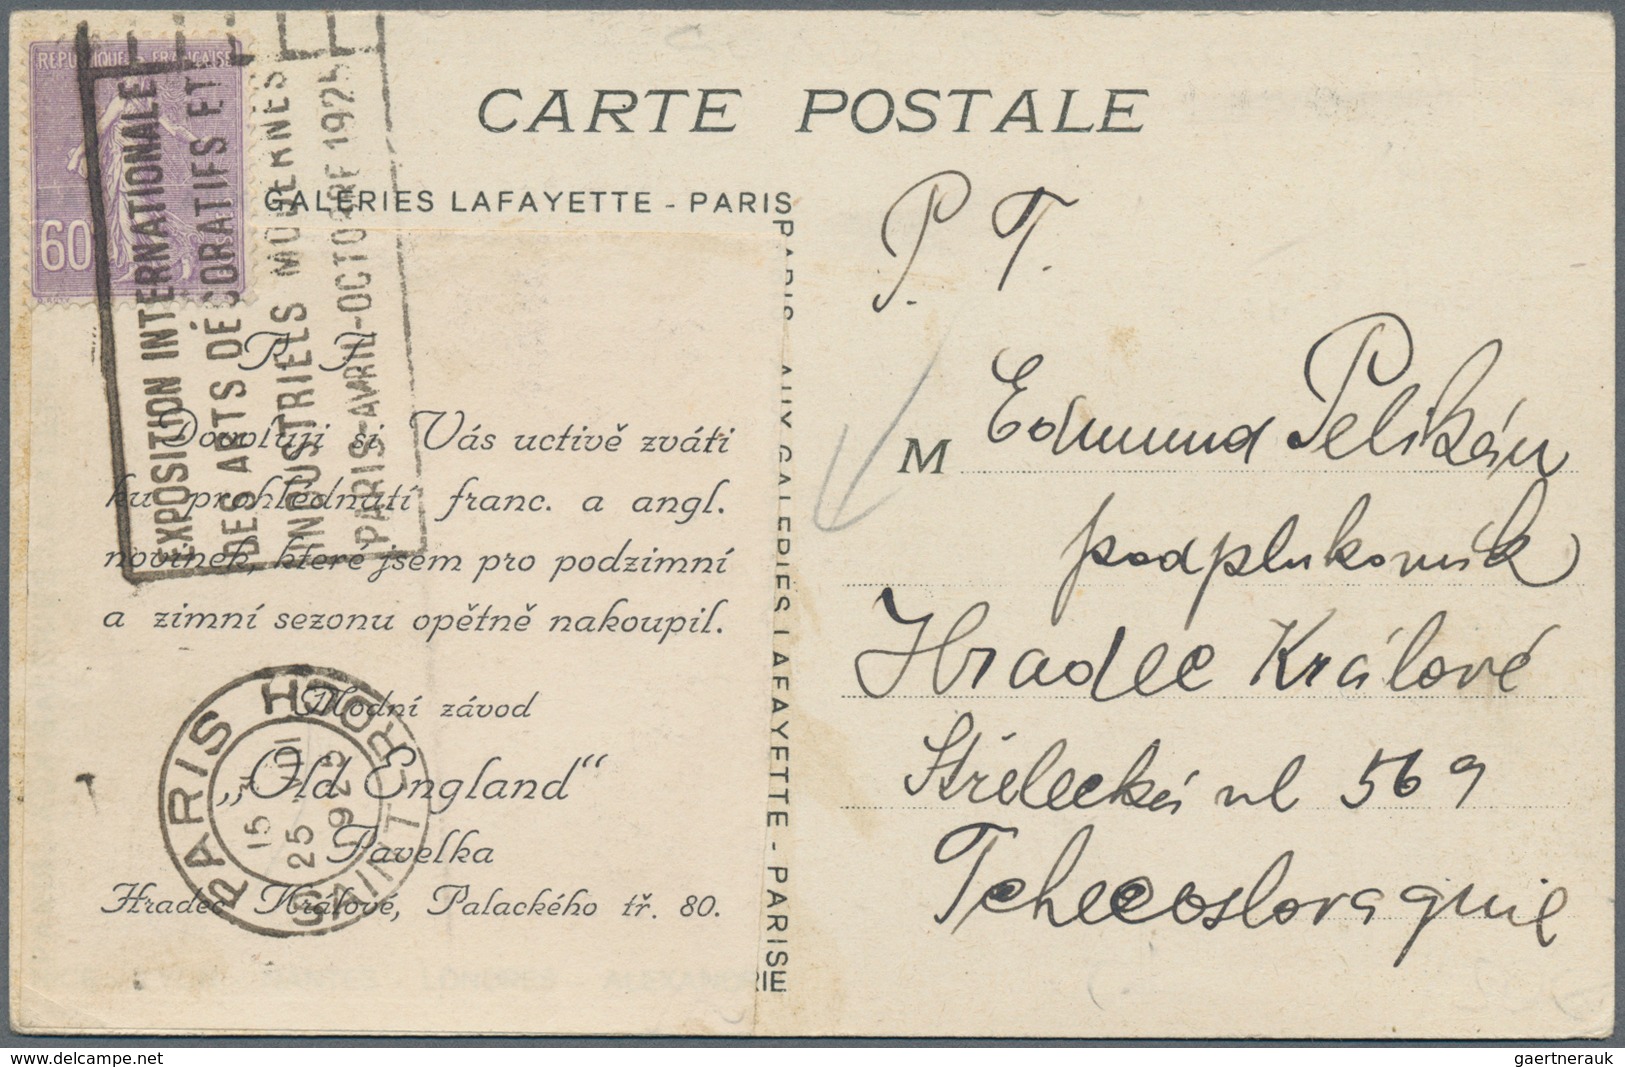 CARTE POSTALE
GALERIES LAFAYETTE - PARIS
REPUBLIQUE FRANÇAISE
60
EXPOSITION INTERNATIONALE
DES ARTS DÉCORATIFS ET
INDUSTRIELS MODERNES
PARIS-AVRIL-OCTOBRE 1925
P. T.
Dovoluji si Vás uctivě zváti
ku prohlédnutí franc. a angl.
novinek, které jsem pro podzimní
a zimní sezonu opětně nakoupil.
Modní závod
„Old England“
Pavelka
Hradec Králové, Palackého tř. 80.
PARIS
15
25
1925
AUX GALERIES LAFAYETTE - PARIS
P. T.
M Edmund Pelikán
podplukovník
Hradec Králové
Střelecká ul 569
Tchecoslovaquie
www.delcampe.net
gaertnerauk